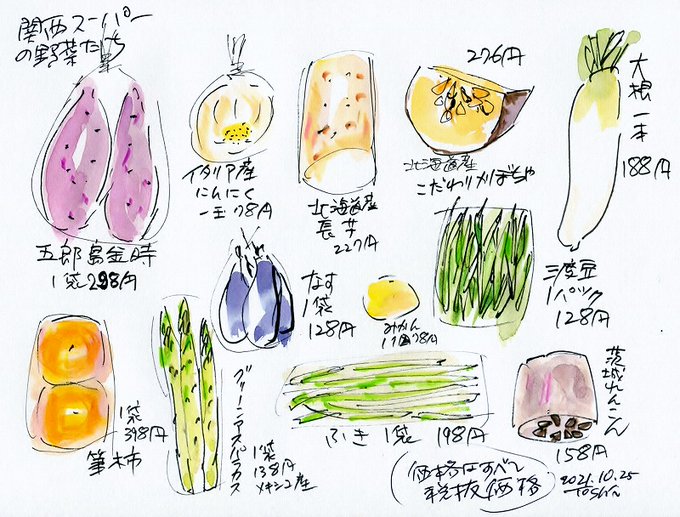 関西スーパー
の野菜たち
五郎島金時
1袋298円
イタリア産
にんにく
一玉78円
北海道産
長芋
227円
276円
北海道産
こだわりかぼちゃ
大根一本
188円
なす
1袋
128円
みかん
1個78円
三度豆
1パック
128円
1袋
398円
筆柿
グリーンアスパラガス
1袋
138円
メキシコ産
ふき 1袋 198円
茨城れんこん
158円
価格はすべて
税抜価格
2021.10.25